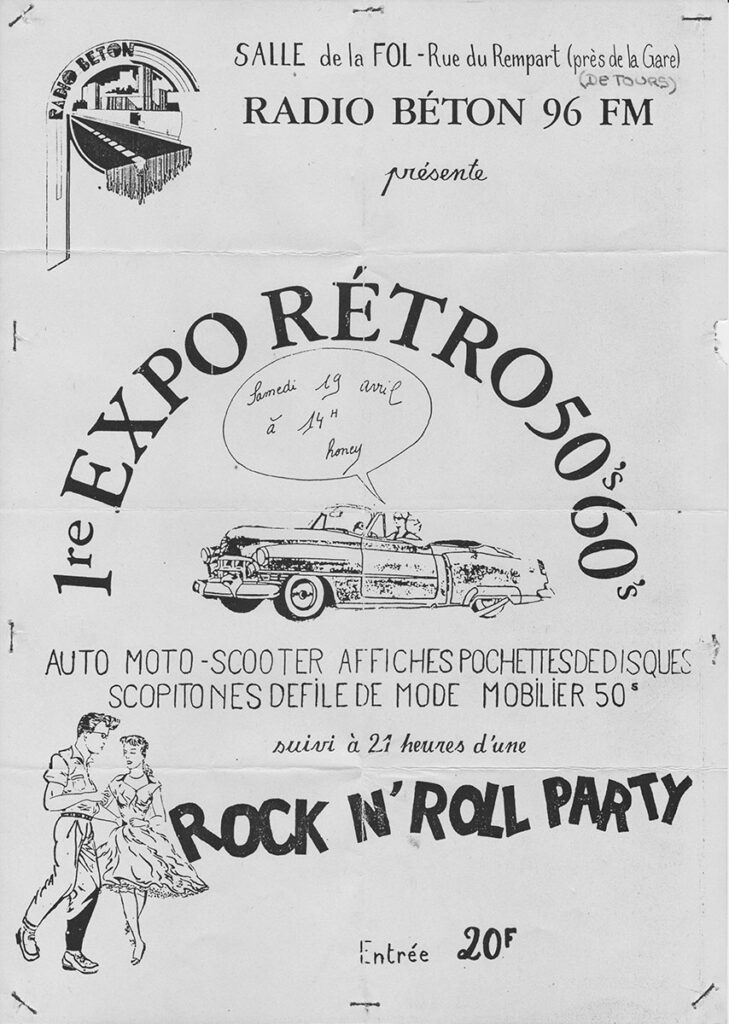 RADIO BETON
SALLE de la FOL - Rue du Rempart (près de la Gare)
(DE TOURS)
RADIO BÉTON 96 FM
présente
1re EXPO RÉTRO 50's 60's
Samedi 19 avril
à 14H
honey
AUTO MOTO - SCOOTER AFFICHES POCHETTES DE DISQUES
SCOPITONES DEFILE DE MODE MOBILIER 50s
suivi à 21 heures d'une
ROCK N' ROLL PARTY
Entrée 20F